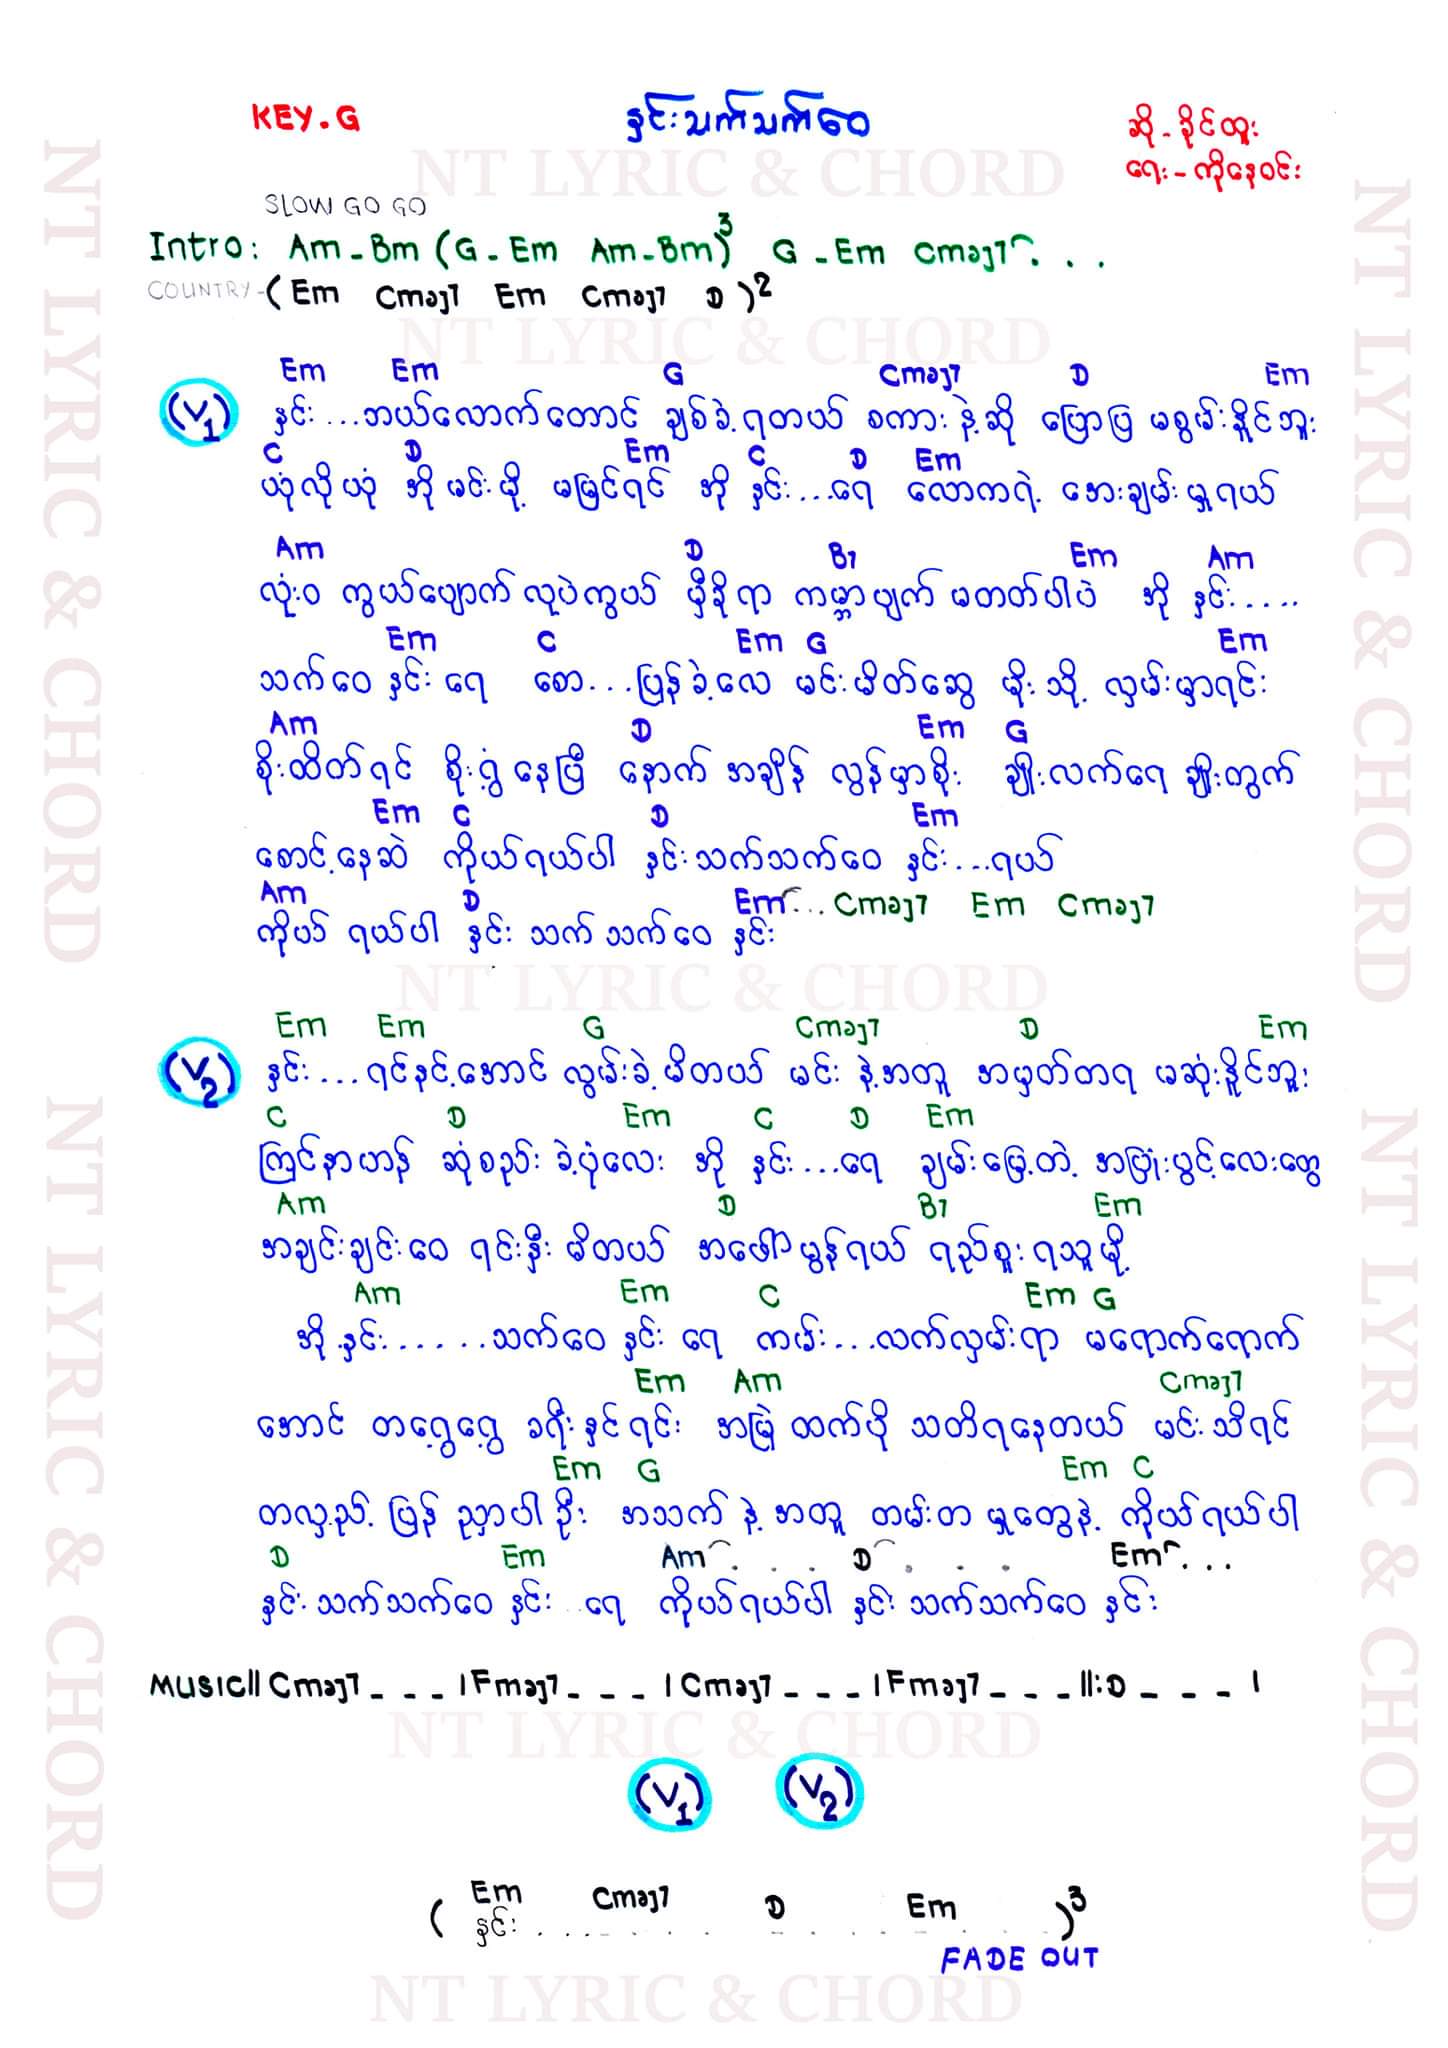 KEY.G
နှင်းသက်သက်ဝေ
ဆို - ခိုင်ထူး
ရေး - ကိုနေဝင်း
SLOW GO GO
Intro: Am - Bm (G - Em Am - Bm)³ G - Em Cmaj7 . . .
COUNTRY - (Em Cmaj7 Em Cmaj7 D)²
Em Em G Cmaj7 D Em
(V1) နှင်း ...ဘယ်လောက်တောင် ချစ်ခဲ့ရတယ် စကား နဲ့ဆို ပြောပြ မစွမ်းနိုင်ဘူး
C D Em C D Em
ယုံလိုယုံ အို မင်းမို့ မမြင်ရင် အို နှင်း...ရေ လောကရဲ့ အေးချမ်းမှုရယ်
Am D B7 Em Am
လုံးဝ ကွယ်ပျောက် လုပဲကွယ် မှီခိုရာ ကမ္ဘာပျက် မတတ်ပါပဲ အို နှင်း.....
Em C Em G Em
သက်ဝေ နှင်း ရေ စော...ပြန်ခဲ့လေ မင်းမိတ်ဆွေ မိုးသို့ လှမ်းမှာရင်း
Am D Em G
စိုးထိတ်ရင် စိုးရွံ့နေပြီ နောက် အချိန် လွန်မှာစိုး ချိုးလက်ရေ ချိုးတွက်
Em C D Em
စောင့်နေဆဲ ကိုယ်ရယ်ပါ နှင်းသက်သက်ဝေ နှင်း...ရယ်
Am D Em... Cmaj7 Em Cmaj7
ကိုယ် ရယ်ပါ နှင်း သက် သက်ဝေ နှင်း
Em Em G Cmaj7 D Em
(V2) နှင်း ...ရင်နင့်အောင် လွမ်းခဲ့မိတယ် မင်း နဲ့အတူ အမှတ်တရ မဆုံးနိုင်ဘူး
C D Em C D Em
ကြင်နာဟန် ဆုံစည်းခဲ့ပုံလေး အို နှင်း...ရေ ချမ်းမြေ့တဲ့ အပြုံးပွင့်လေးတွေ
Am D B7 Em
အချင်းချင်းဝေ ရင်းနှီးမိတယ် အဖော်မွန်ရယ် ရည်စူးရသူမို့
Am Em C Em G
အို နှင်း......သက်ဝေ နှင်း ရေ ကမ်း...လက်လှမ်းရာ မရောက်ရောက်
Em Am Cmaj7
အောင် တရွေ့ရွေ့ ခရီးနှင်ရင်း အမြဲ ထက်ပို သတိရနေတယ် မင်းသိရင်
Em G Em C
တလှည့် ပြန် ညှာပါဦး အသက် နဲ့အတူ တမ်းတ မှုတွေနဲ့ ကိုယ်ရယ်ပါ
D Em Am . . . D . . . Em...
နှင်းသက်သက်ဝေ နှင်း ရေ ကိုယ်ရယ်ပါ နှင်း သက်သက်ဝေ နှင်း
MUSIC|| Cmaj7 - - - | Fmaj7 - - - | Cmaj7 - - - | Fmaj7 - - - ||: D - - - |
(V1) (V2)
Em Cmaj7 D Em
( နှင်း . . . . . . . . . . . . )³
FADE OUT
NT LYRIC & CHORD
NT LYRIC & CHORD
NT LYRIC & CHORD
NT LYRIC & CHORD
NT LYRIC & CHORD
NT LYRIC & CHORD
NT LYRIC & CHORD
NT LYRIC & CHORD
NT LYRIC & CHORD